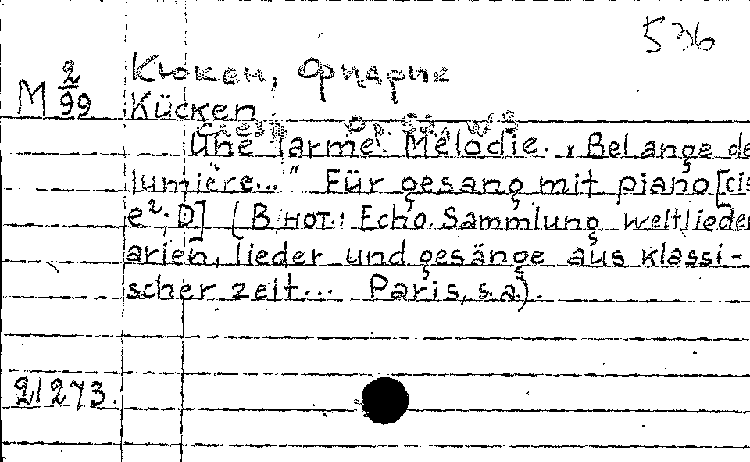 536
Кюкен, Фридрих
M 2/99 Kücken
Une larme. Mélodie. „Bel ange de
lumière..." Für gesang mit piano [cis
e². D] (В нот.: Echo. Sammlung weltlieder
arien, lieder und gesänge aus klassi-
scher zeit... Paris, s.a).
21273.